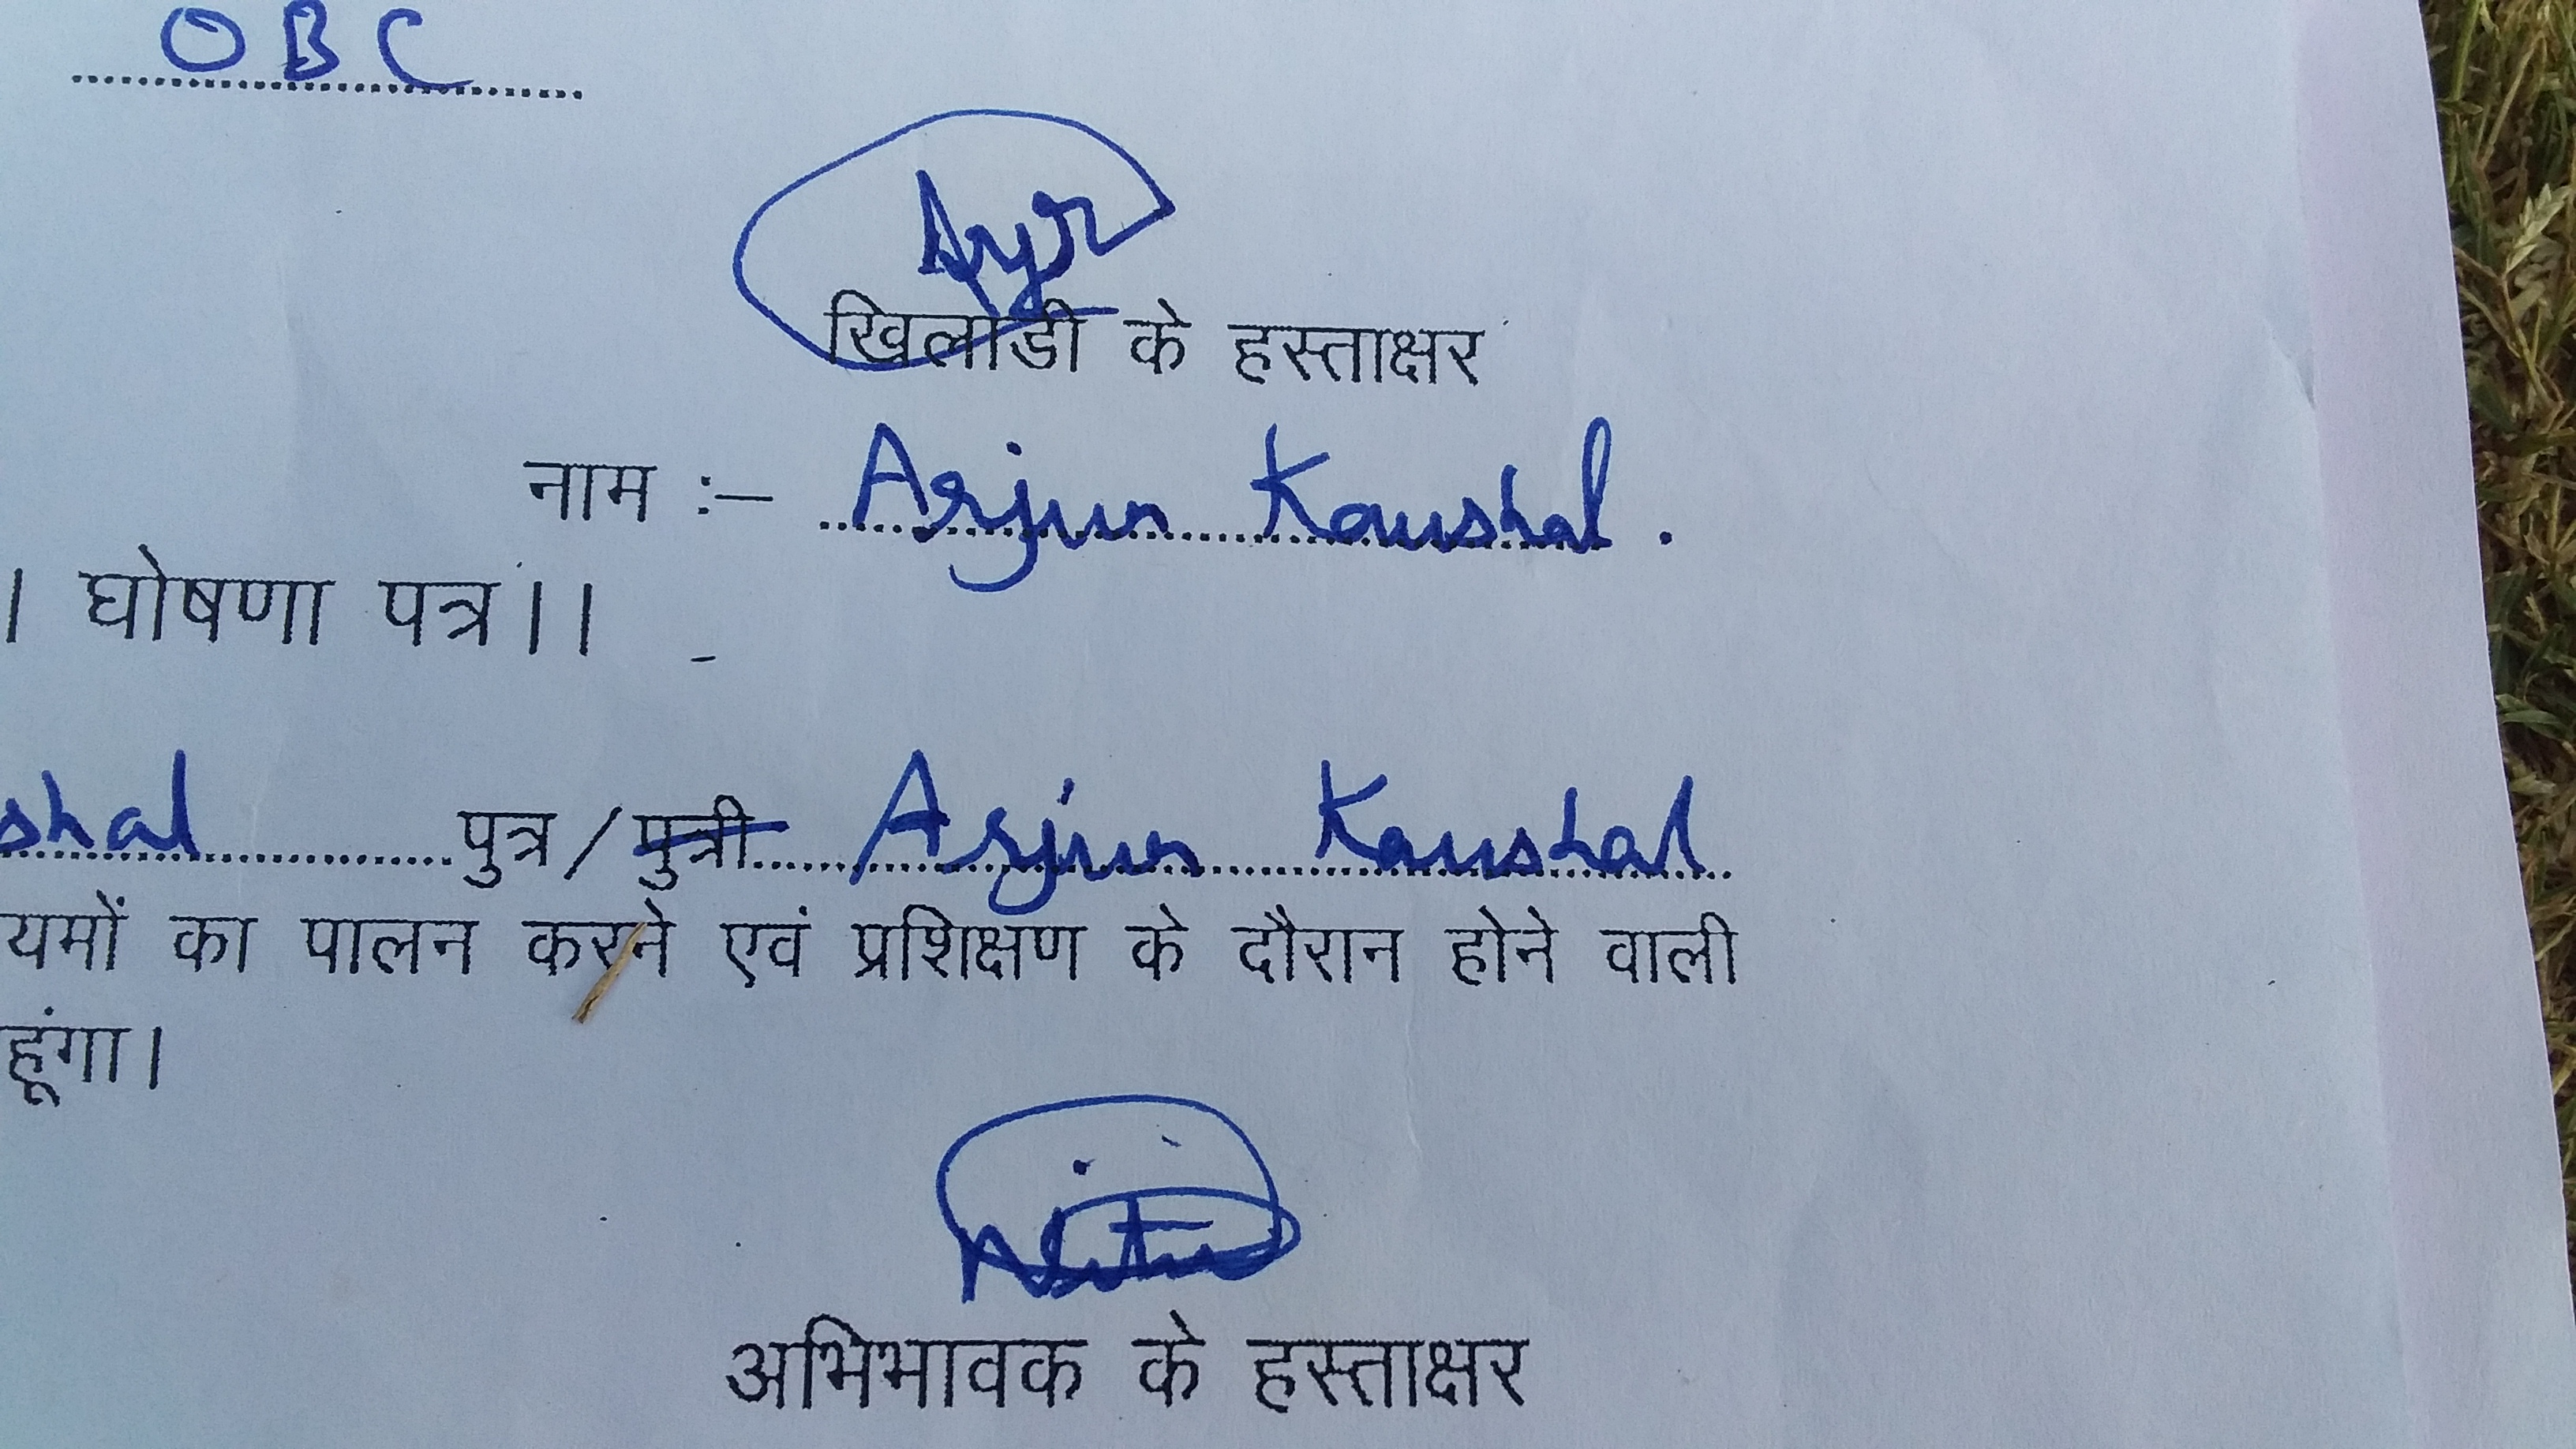 OBC
खिलाडी के हस्ताक्षर
नाम :- Arjun Kaushal.
। घोषणा पत्र।।
shal पुत्र/पुत्री Arjun Kaushal
यमों का पालन करने एवं प्रशिक्षण के दौरान होने वाली
हूंगा।
अभिभावक के हस्ताक्षर